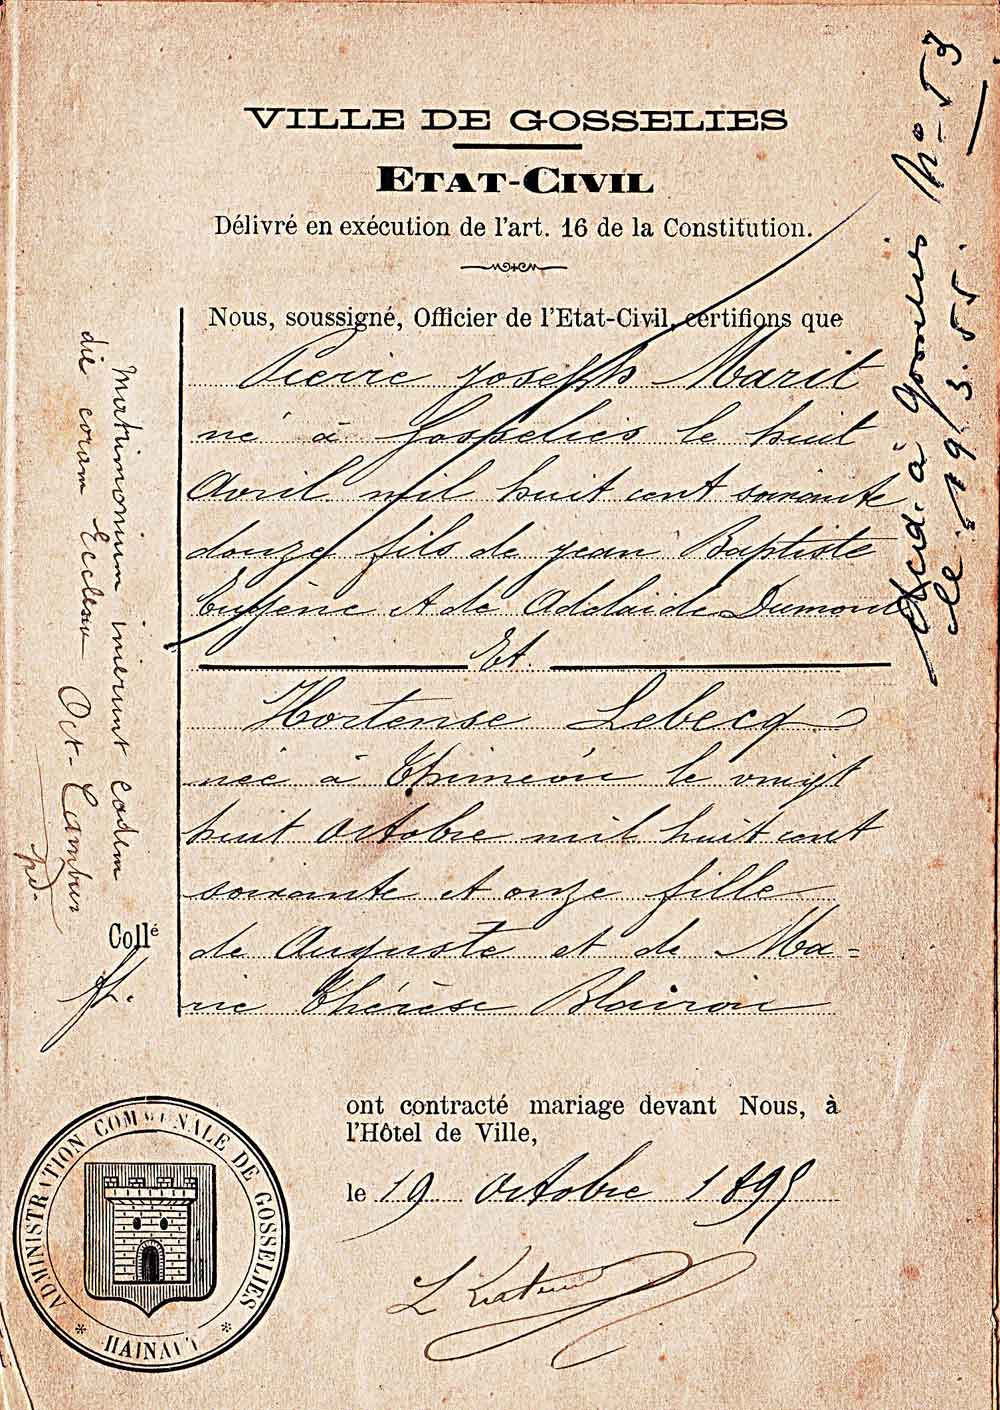 VILLE DE GOSSELIES
ETAT-CIVIL
Délivré en exécution de l'art. 16 de la Constitution.
Nous, soussigné, Officier de l'Etat-Civil, certifions que
Pierre Joseph Marit
né à Gosselies le huit
Avril mil huit cent soixante
douze fils de Jean Baptiste
Eugène et de Adelaïde Dumont
Et
Hortense Lebecq
née à Thiméon le vingt
huit Octobre mil huit cent
soixante et onze fille
de Auguste et de Ma=
rie Thérèse Blairon
ont contracté mariage devant Nous, à
l'Hôtel de Ville,
le 19 Octobre 1895
Collé
Matrimonium inierunt eadem
die coram Oct.
à Gosselies No 53
le 19.3.55.
ADMINISTRATION COMMUNALE DE GOSSELIES
* HAINAUT *